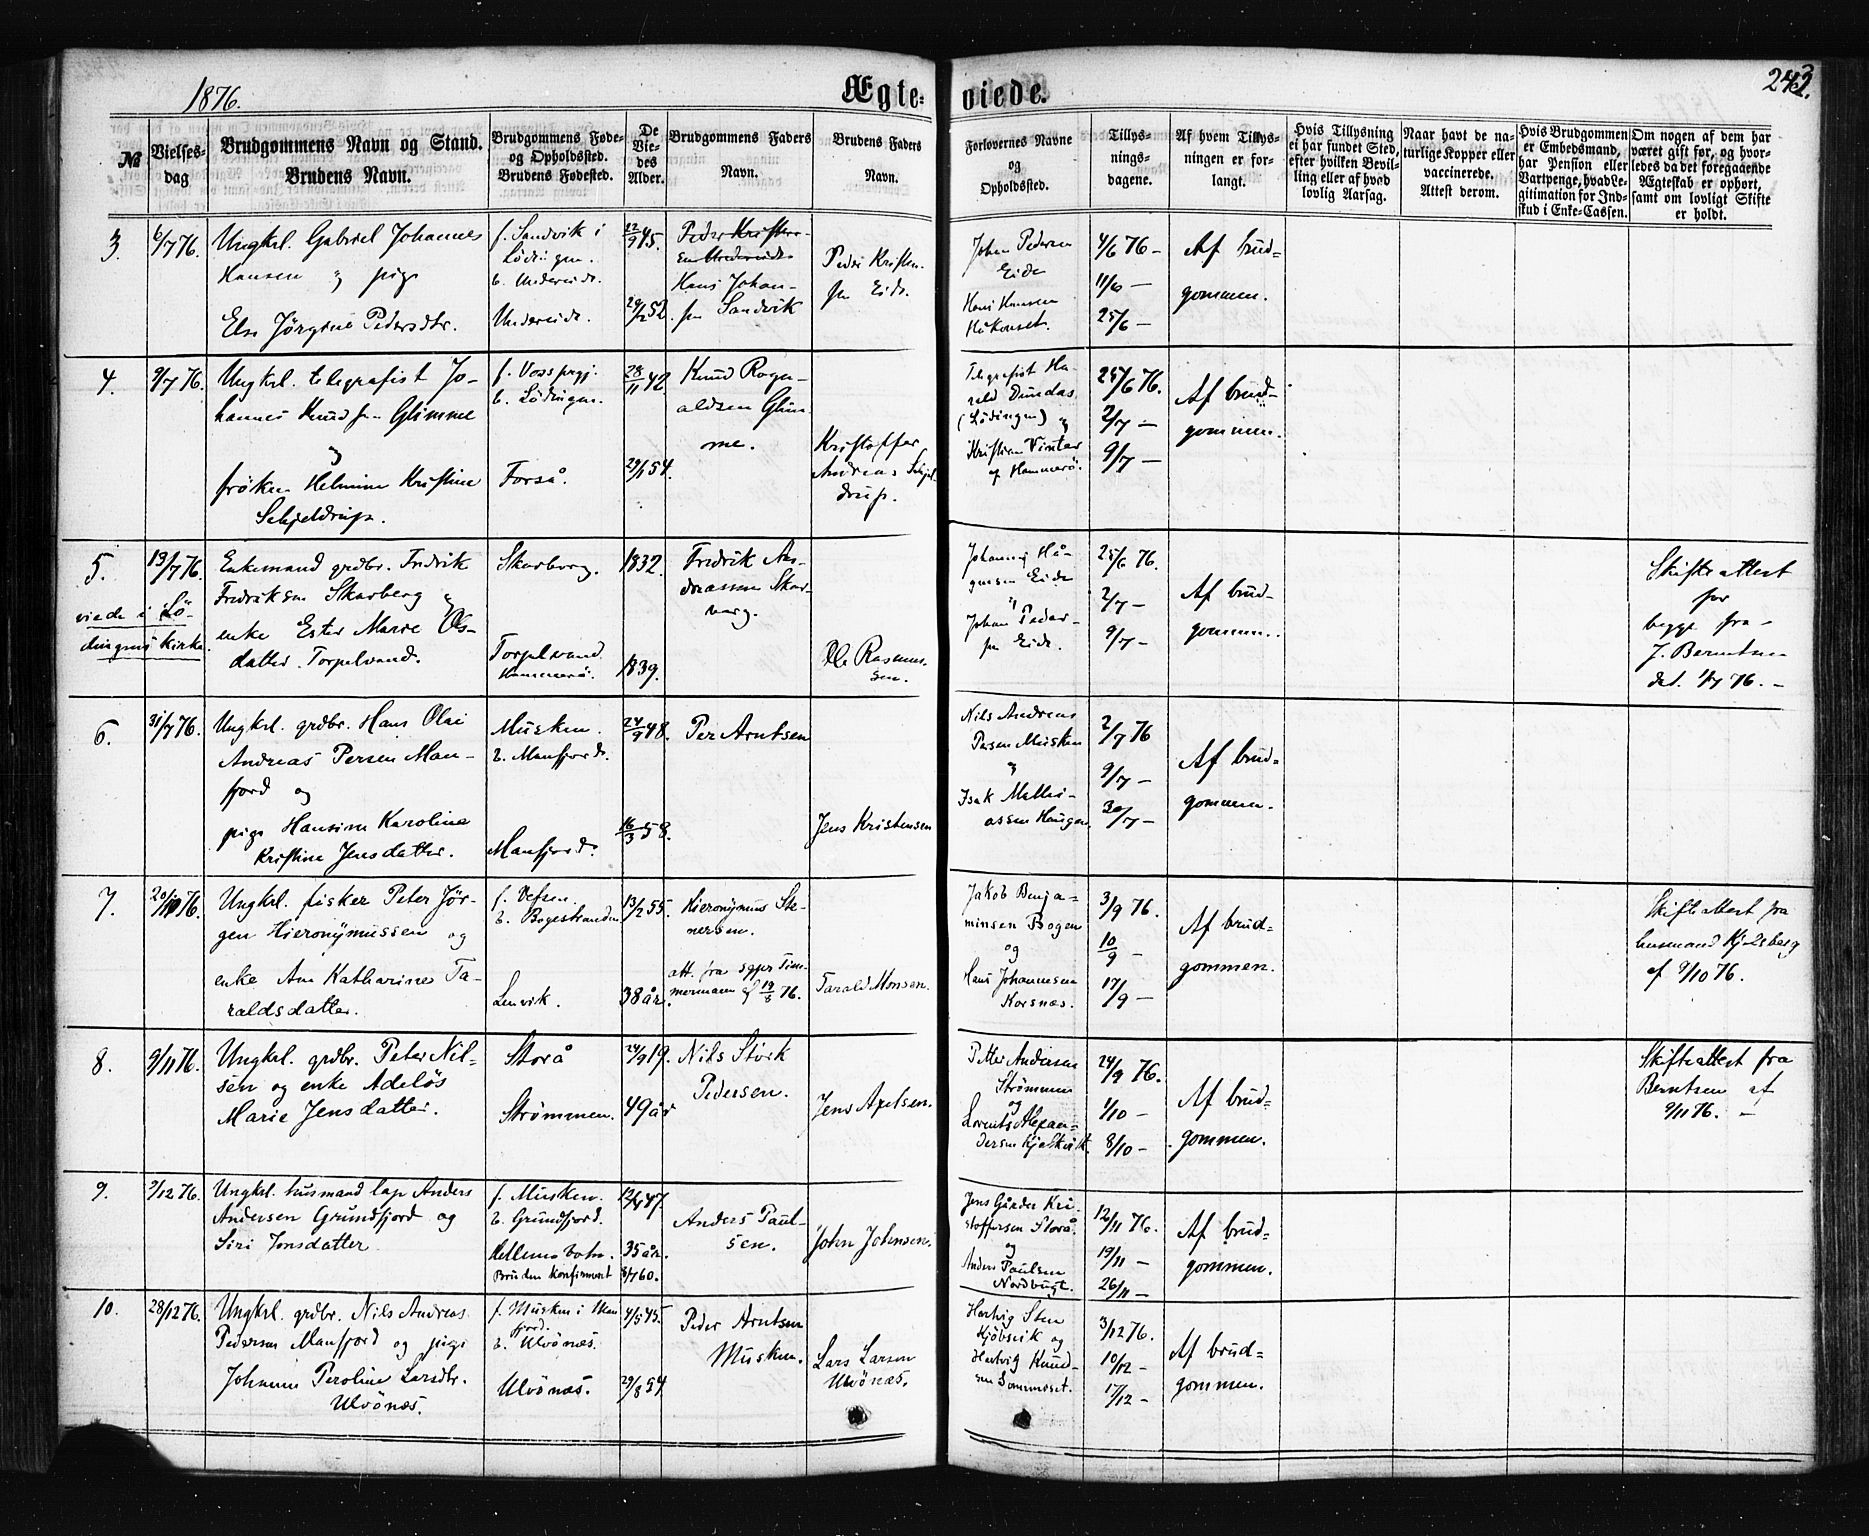 1876.
Ægte-
viede.
243.
№
Vielses-
dag
Brudgommens Navn og Stand.
Brudens Navn.
Brudgommens Føde-
og Opholdssted.
Brudens Fødested.
De
Vie-
des
Alder.
Brudgommens Faders
Navn.
Brudens Faders
Navn.
Forlovernes Navne
og
Opholdssted.
Tillys-
nings-
dagene.
Af hvem Tillys-
ningen er for-
langt.
Hvis Tillysning
ei har fundet Sted,
efter hvilken Bevil-
ling eller af hvad
lovlig Aarsag.
Naar havt de na-
turlige Kopper eller
vaccinerede.
Attest derom.
Hvis Brudgommen
er Embedsmand,
har Pension eller
Vartpenge, hvad Le-
gitimation for Ind-
skud i Enke-Cassen.
Om nogen af dem har
været gift før, og hvor-
ledes da det foregaaende
Ægteskab er ophørt,
samt om lovligt Skifte
er holdt.
3.
6/7 76.
Ungkrl. Gabriel Johannes
Hansen og pige
Else Jørgine Pedersdtr.
f. Sandvik i
Lödingen.
b. Undereide.
Undereide.
22/9 45.
29/2 52.
Peder Kristen-
sen Undereide
Hans Johan-
sen Sandvik
Peder Kristen-
sen Eide.
Johan Pedersen
Eide
Hans Hansen
Håkonset.
4/6 76 -
11/6 -
25/6 -
Af brud-
gommen.
4.
9/7 76.
Ungkrl. telegrafist Jo-
hannes Knudsen Glimme
og
fröken Helmine Kristine
Schjeldrup.
f. Voss prgj.
b. Lödingen.
Forså.
28/11 42
29/1 54.
Knud Rogn-
aldsen Glim-
me.
Kristoffer
Andreas Schjel-
drup.
Telegrafist Ha-
rald Dundas
(Lödingen) og
Kristian Vinter
af Hammerö.
25/6 76.
2/7 -
9/7 -
Af brud-
gommen.
5.
viede i Lö-
dingens kirke.
19/7 76.
Enkemand grdbr. Fredrik
Fredriksen Skarberg og
enke Ester Marie Ols-
datter Torpelvand.
Skarberg.
Torpelvand
Hammerö.
1832.
1839.
Fredrik An-
dreassen Skar-
berg.
Ole Rasmus-
sen.
Johannes Hå-
gensen Eide
og
Johan Peder-
sen Eide.
25/6 76.
2/7 -
9/7 -
Af brud-
gommen.
Skifteattest
for
begge fra
J. Berntsen
dat. 1/7 76. -
6.
31/7 76.
Ungkrl. grdbr. Hans Olai
Andreas Persen Man-
fjord og
pige Hansine Karoline
Kristine Jensdatter.
Musken.
b. Manfjord.
Manfjord.
24/9 48.
16/3 58.
Per Arntsen
Jens Kristensen
Nils Andreas
Persen Musken
og
Isak Mathi-
assen Haugen.
2/7 76
9/7 -
30/7 -
Af brud-
gommen.
7.
20/10 76.
Ungkrl. fisker Peter Jör-
gen Hieronÿmussen og
enke Ane Katharine Ta-
raldsdatter.
f. Vefsen.
b. Bogestranden
Lenvik.
13/2 55.
38 år.
Hieronÿmus Ste-
nersen.
att. fra sgpr Tim-
mermann af 19/8 76.
Tarald Monsen.
Jakob Benja-
minsen Bogen
og
Hans Johannesen
Korsnæs.
3/9 76.
10/9 -
17/9 -
Af brud-
gommen.
Skifteattest fra
husmand Kjelsberg
af 9/10 76.
8.
9/11 76.
Ungkrl. grdbr. Peter Nil-
sen og enke Adelös
Marie Jensdatter.
Storå
Strömmen.
24/9 19.
49 år
Nils Stork
Pedersen.
Jens Axelsen.
Petter Andersen
Strömmen
og
Lorents Alexan-
dersen Kjeskvik.
24/9 76.
1/10 -
8/10 -
Af brud-
gommen.
Skifteattest fra
Berntsen af
9/11 76. -
9.
9/12 76.
Ungkrl. husmand lap Anders
Andersen Grundfjord og
Siri Jonsdatter
f. Musken.
b. Grundfjord.
Hellemobotn.
Bruden konfirmert
12/4 47.
35 år.
8/7 60.
Anders Paul-
sen.
John Johnsen.
Jens Gårder Kri-
stoffersen Storå
og
Anders Paulsen
Nordbugt.
12/11 76.
19/11 -
26/11 -
Af brud-
gommen.
10.
28/12 76.
Ungkrl. grdbr. Nils Andreas
Pedersen Manfjord og pige
Johanne Peroline Larsdtr.
Ulvönæs.
f. Musken i Man-
fjord.
b. Ulvönæs.
Ulvönæs.
4/5 45.
29/8 54
Peder Arntsen
Musken.
Lars Larsen
Ulvönæs.
Hartvig Steen
Kjöbsvik og
Hartvig Knud-
sen Sommerset.
3/12 76.
10/12 -
17/12 -
Af brud-
gommen.